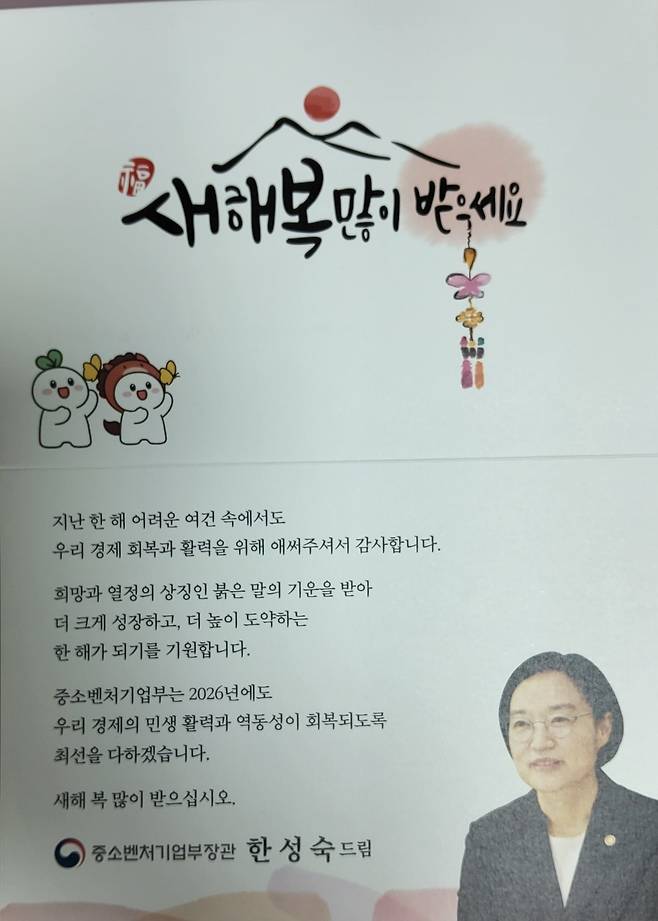 福
새해 복 많이 받으세요
지난 한 해 어려운 여건 속에서도
우리 경제 회복과 활력을 위해 애써주셔서 감사합니다.
희망과 열정의 상징인 붉은 말의 기운을 받아
더 크게 성장하고, 더 높이 도약하는
한 해가 되기를 기원합니다.
중소벤처기업부는 2026년에도
우리 경제의 민생 활력과 역동성이 회복되도록
최선을 다하겠습니다.
새해 복 많이 받으십시오.
중소벤처기업부장관 한성숙 드림